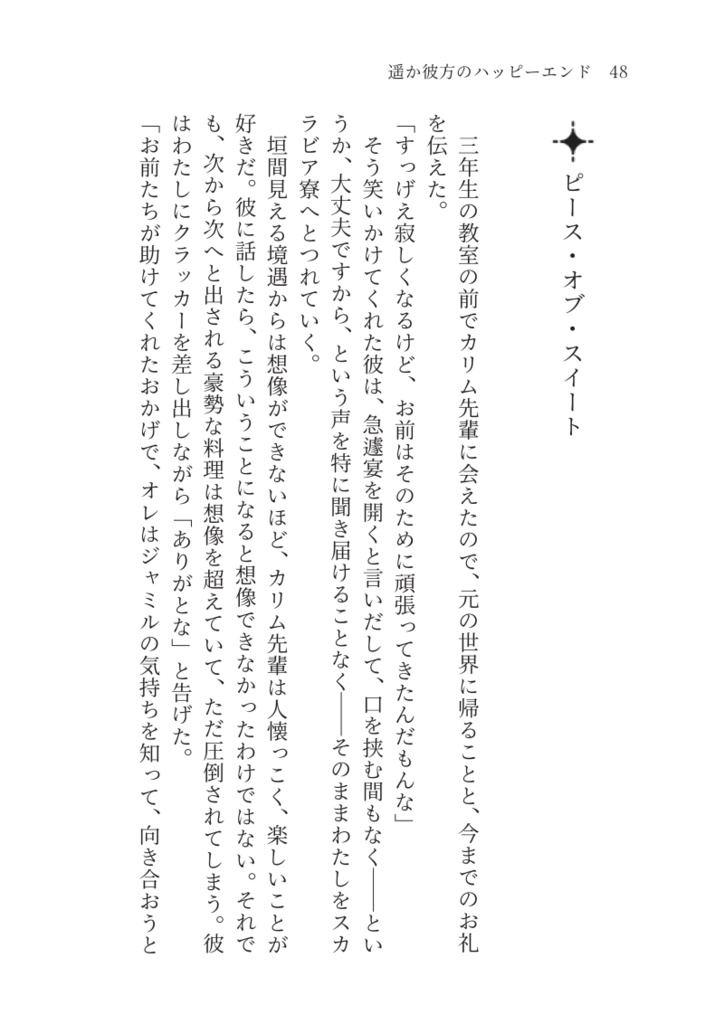 遥か彼方のハッピーエンド 48
ピース・オブ・スイート
三年生の教室の前でカリム先輩に会えたので、元の世界に帰ることと、今までのお礼
を伝えた。
「すっげえ寂しくなるけど、お前はそのために頑張ってきたんだもんな」
そう笑いかけてくれた彼は、急遽宴を開くと言いだして、口を挟む間もなく――とい
うか、大丈夫ですから、という声を特に聞き届けることなく――そのままわたしをスカ
ラビア寮へとつれていく。
垣間見える境遇からは想像ができないほど、カリム先輩は人懐っこく、楽しいことが
好きだ。彼に話したら、こういうことになると想像できなかったわけではない。それで
も、次から次へと出される豪勢な料理は想像を超えていて、ただ圧倒されてしまう。彼
はわたしにクラッカーを差し出しながら「ありがとな」と告げた。
「お前たちが助けてくれたおかげで、オレはジャミルの気持ちを知って、向き合おうと